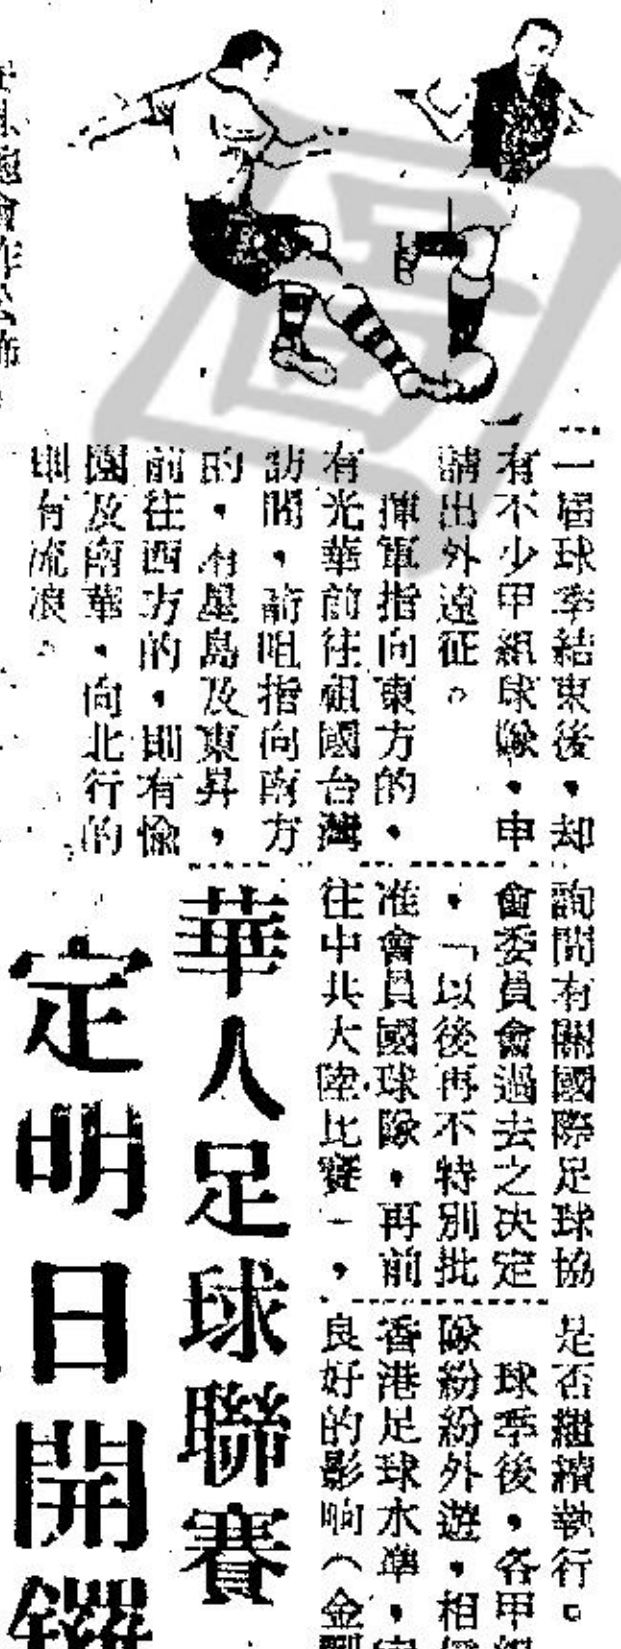 一屆球季結束後，却
有不少甲組球隊，申
請出外遠征。
揮軍指向東方的，
有光華前往祖國台灣
訪問，箭咀指向南方
的，有星島及東昇，
前往西方的，則有愉
園及南華，向北行的
則有流浪。
詢問有關國際足球協
會委員會過去之決定
，「以後再不特別批
准會員國球隊，再前
往中共大陸比賽」，
是否繼續執行。
球季後，各甲組
隊紛紛外遊，相信
香港足球水準，
良好的影响（金
華人足球聯賽
定明日開鑼